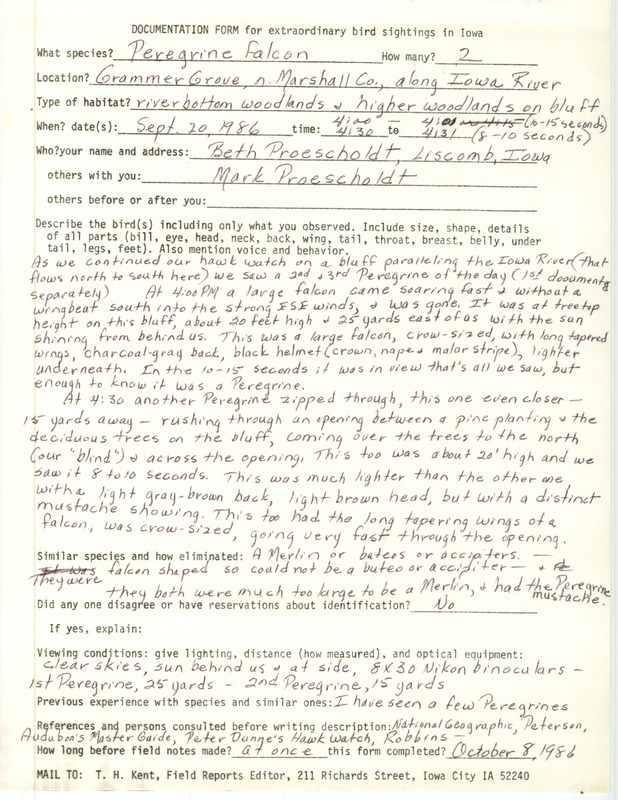 DOCUMENTATION FORM for extraordinary bird sightings in Iowa
What species? Peregrine Falcon How many? 2
Location? Grammer Grove, n. Marshall Co., along Iowa River
Type of habitat? river bottom woodlands & higher woodlands on bluff
When? date(s): Sept. 20, 1986 time: 4:00 – to 4:01 (10-15 seconds)
4:30 4:31 (8-10 seconds)
Who? your name and address: Beth Proescholdt, Liscomb, Iowa
others with you: Mark Proescholdt
others before or after you:
Describe the bird(s) including only what you observed. Include size, shape, details
of all parts (bill, eye, head, neck, back, wing, tail, throat, breast, belly, under
tail, legs, feet). Also mention voice and behavior.
As we continued our hawk watch on a bluff paralleling the Iowa River (that
flows north to south here) we saw a 2nd & 3rd Peregrine of the day (1st documented
separately) At 4:00 PM a large falcon came soaring fast & without a
wingbeat south into the strong ESE winds, & was gone. It was at treetop
height on this bluff, about 20 feet high & 25 yards east of us with the sun
shining from behind us. This was a large falcon, crow-sized, with long tapered
wings, charcoal-gray back, black helmet (crown, nape & malar stripe), lighter
underneath. In the 10-15 seconds it was in view that's all we saw, but
enough to know it was a Peregrine.
At 4:30 another Peregrine zipped through, this one even closer –
15 yards away – rushing through an opening between a pine planting & the
deciduous trees on the bluff, coming over the trees to the north
(our "blind") & across the opening. This too was about 20' high and we
saw it 8 to 10 seconds. This was much lighter than the other one,
with a light gray-brown back, light brown head, but with a distinct
mustache showing. This too had the long tapering wings of a
falcon, was crow-sized, going very fast through the opening.
Similar species and how eliminated: A Merlin or buteos or accipiters. —
It was They were falcon shaped so could not be a buteo or accipiter — &
they both were much too large to be a Merlin, & had the Peregrine
mustache.
Did any one disagree or have reservations about identification? No
If yes, explain:
Viewing conditions: give lighting, distance (how measured), and optical equipment:
clear skies, sun behind us & at side, 8X30 Nikon binoculars –
1st Peregrine, 25 yards – 2nd Peregrine, 15 yards
Previous experience with species and similar ones: I have seen a few Peregrines
References and persons consulted before writing description: National Geographic, Peterson,
Audubon's Master Guide, Peter Dunne's Hawk Watch, Robbins –
How long before field notes made? at once this form completed? October 8, 1986
MAIL TO: T. H. Kent, Field Reports Editor, 211 Richards Street, Iowa City IA 52240